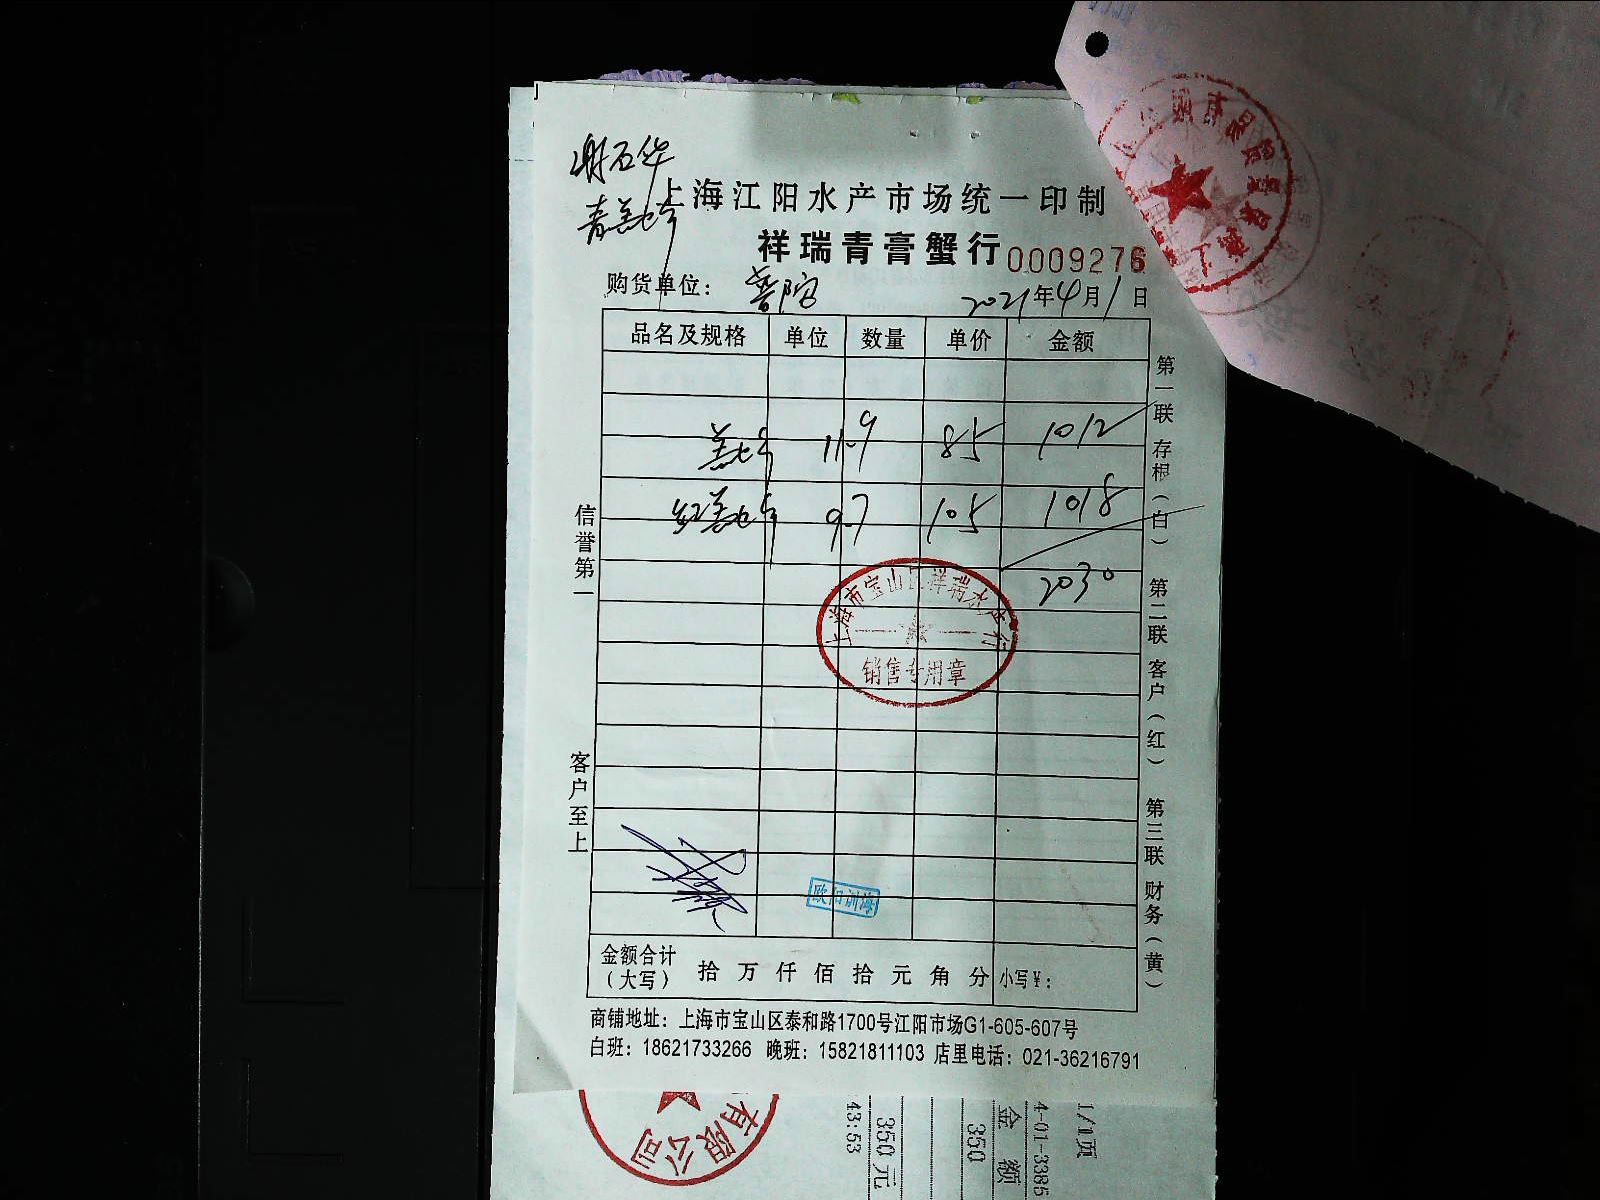 上海江阳水产市场统一印制
祥瑞青膏蟹行 0009276
购货单位：普陀 2021年4月1日
品名及规格 单位 数量 单价 金额
11.9 85 1012
红 9.7 105 1018
2030
上海市宝山区祥瑞水产行
销售专用章
欧阳洲海
金额合计
（大写） 拾 万 仟 佰 拾 元 角 分 小写￥：
商铺地址：上海市宝山区泰和路1700号江阳市场G1-605-607号
白班：18621733266 晚班：15821811103 店里电话：021-36216791
信誉第一
客户至上
第一联 存根（白）
第二联 客户（红）
第三联 财务（黄）
有限公司
1/1页
4-01-3385
金 额
350
350元
43:53